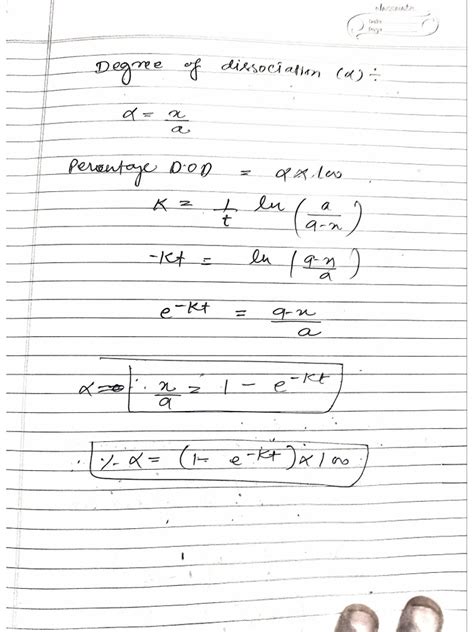 Degree of dissociation (α) ÷
α = x/a
Percentage D.O.D = α × 100
K = 1/t ln (a/a-x)
-Kt = ln (a-x/a)
e^-Kt = a-x/a
α = x/a = 1 - e^-Kt
∴ % α = (1- e^-Kt) × 100